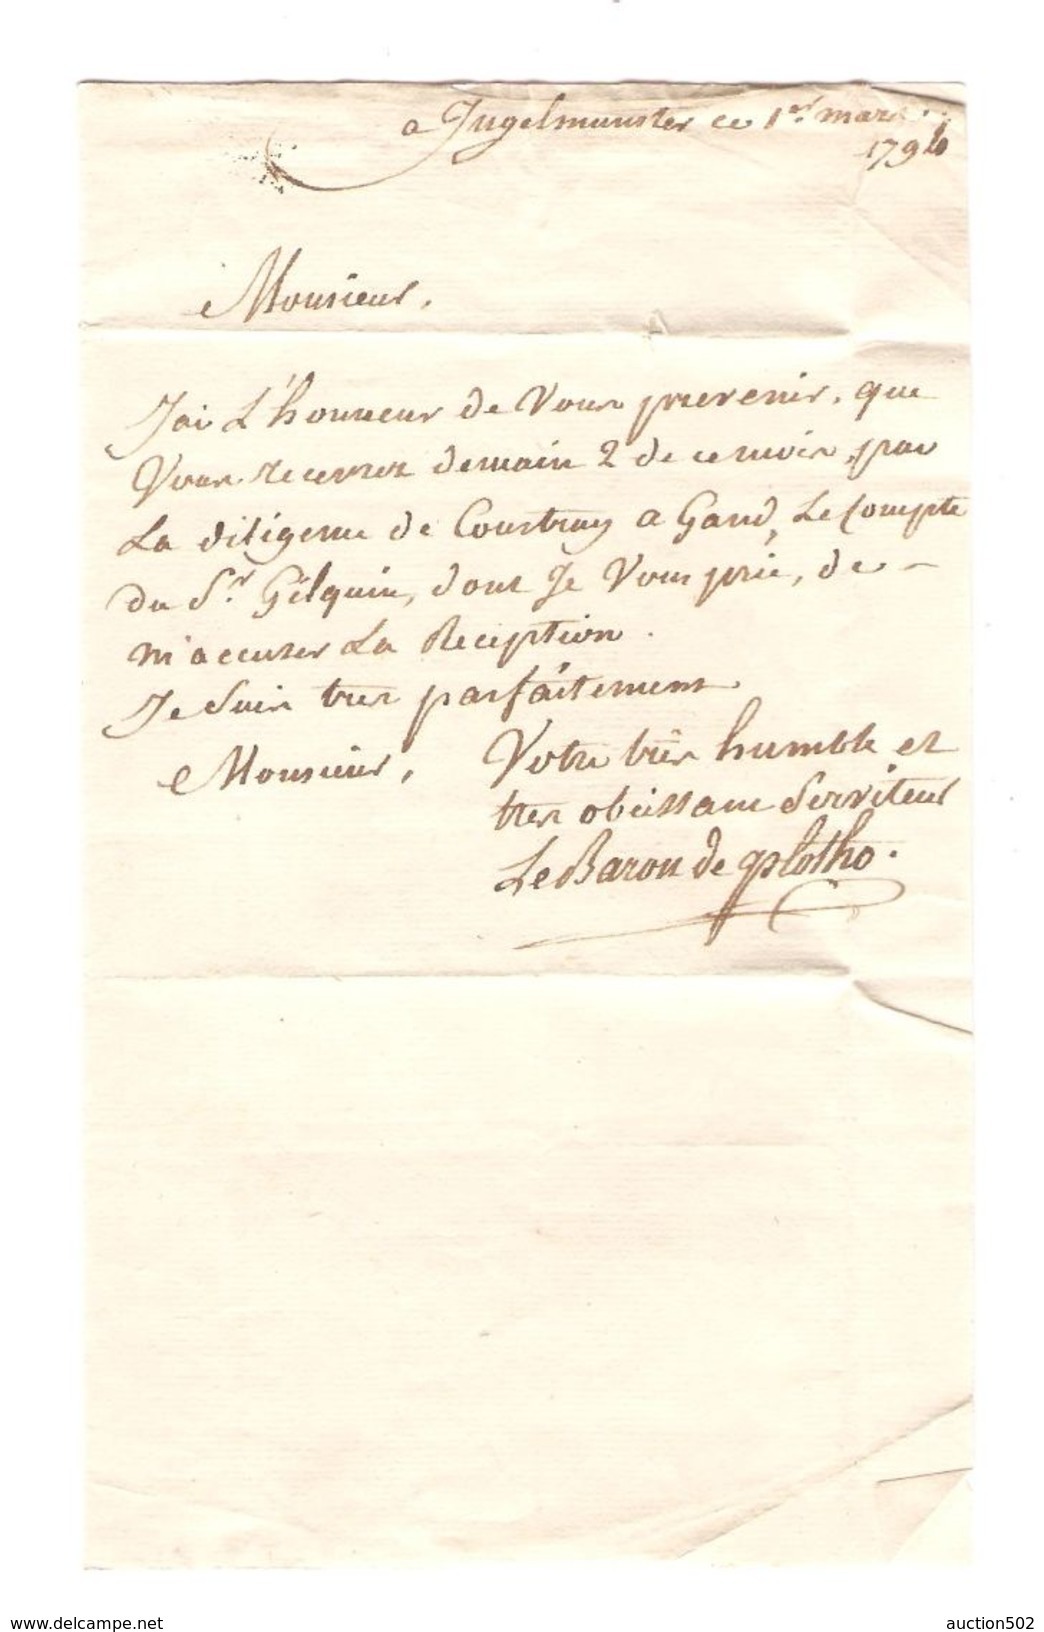 a Ingelmunster ce 1er mars
1794
Monsieur,
J'ai L'honneur de Vous prevenir, que
Vous recevrez demain 2 de ce mois, par
La diligence de Courtray a Gand, Le Compte
du Sr Gilquin, dont Je Vous prie, de -
m'accuser La Reception.
Je Suis tres parfaitement
Monsieur, Votre très humble et
tres obeissant Serviteur
Le Baron de Plotho.
www.delcampe.net
auction502